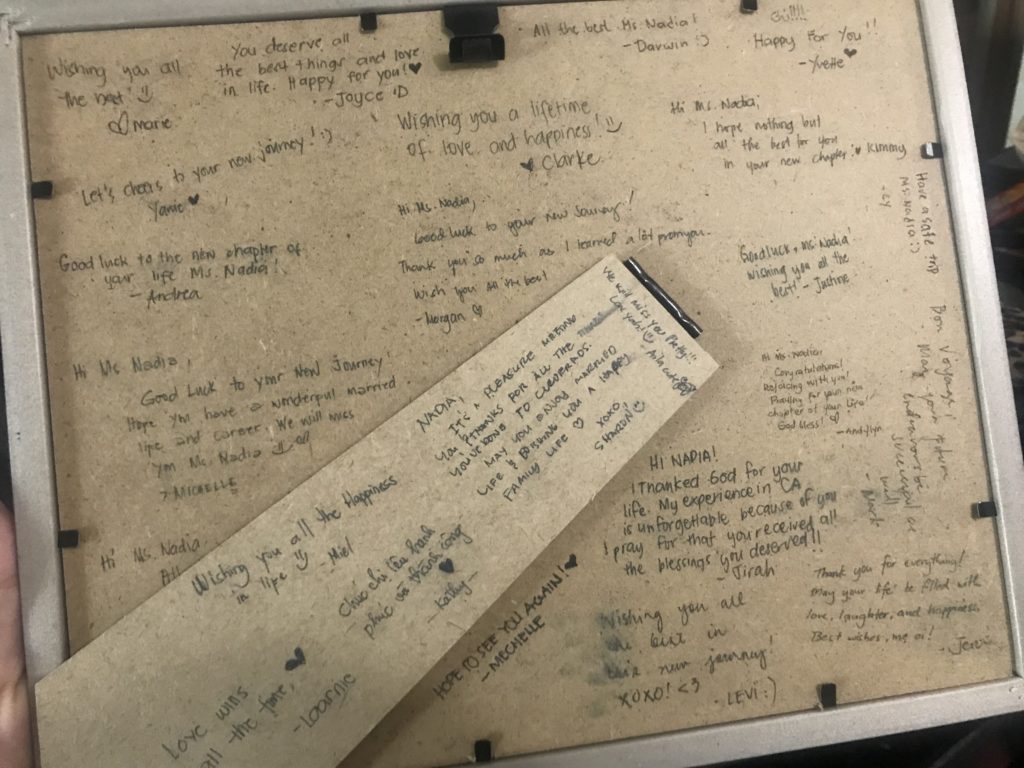 Wishing you all
the best :)
♡ Marie
You deserve all
the best things and love
in life. Happy for you! ♥
-Joyce :D
All the best Ms. Nadia!
-Darwin :)
Happy For You!!
-Yvette ♥
Wishing you a lifetime
of love and happiness! :)
♥ Clarke
Hi Ms. Nadia,
I hope nothing but
all the best for you
in your new chapter! ♥ Kimmy
Let's cheers to your new journey! :)
Yanie ♥
Have a safe trip
Ms. Nadia :)
Hi Ms. Nadia,
Good luck to your new Journey!
Thank you so much as I learned a lot from you.
Wish you all the best
-Morgan ♡
Good luck to the new chapter of
your life Ms. Nadia!
- Andrea
Good luck, Ms. Nadia!
Wishing you all the
best! - Justine
Hi Ms Nadia,
Good Luck to your New Journey!
Hope you have a wonderful married
life and career. We will miss
you Ms. Nadia
- MICHELLE
We will miss you Pretty!!
NADIA,
IT'S A PLEASURE MEETING
YOU & THANKS FOR ALL THE THINGS
YOU'VE DONE TO CLOUDFRDS.
MAY YOU ENJOY MARRIED
LIFE & WISHING YOU A HAPPY
FAMILY LIFE ♡
XOXO
SHARON :)
Hi Ms. Nadia!
Congratulations!
Rejoicing with you!
Praying for your new
chapter of your life!
God bless! ♡
-Andylyn
Bon Voyage!
May your return
endeavours be
successful as
well
- Mach
HI NADIA!
I Thanked God for your
life. My experience in CA
is unforgettable because of you
I pray for that you received all
the blessings you deserved!!
- Jirah
Hi Ms. Nadia
All
Wishing you all the Happiness
in life :)
- Miel
Chúc chị lấu hạnh
phúc và thành công
♥
- Kathy -
HOPE TO SEE YOU AGAIN! ♥
- MECHELLE
Thank you for everything!
May your life be filled with
love, laughter, and happiness.
Best wishes, me oi!
Wishing you all
the best in
this new journey!
XOXO! <3
LEVI :)
Love wins
all the time,
♥